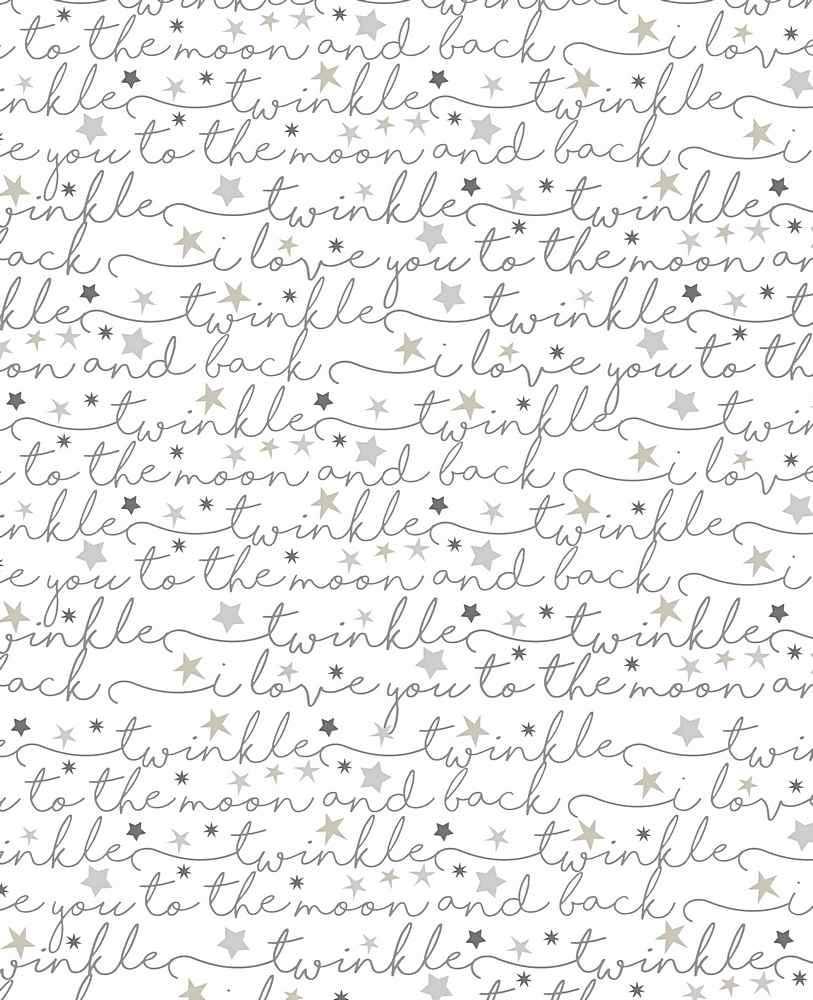 twinkle twinkle
to the moon and back i love
inkle twinkle twinkle
e you to the moon and back i
winkle twinkle twinkle
back i love you to the moon an
kle twinkle twinkle t
oon and back i love you to th
e twinkle twinkle twin
to the moon and back i love
inkle twinkle twinkle
e you to the moon and back i
winkle twinkle twinkle
back i love you to the moon an
e twinkle twinkle twin
to the moon and back i love
inkle twinkle twinkle
e you to the moon and back i
winkle twinkle twinkle